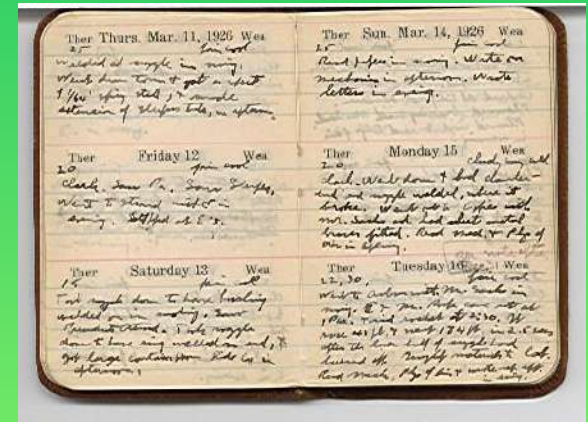 Ther Thurs. Mar. 11, 1926 Wea
25 fair cool
Welded at nozzle in morng.
Went down town & got a
1/64" spring steel, & made
extension of in afternoon
Ther Friday 12 Wea
20 fair cool
Clark. Saw Pa. Saw
Went to in
evening. at E's.
Ther Saturday 13 Wea
15
Took nozzle down to have
welded on in morning. Saw
President Atwood. Took nozzle
down to have ring welded on end, &
got large
afternoon.
Ther Sun. Mar. 14, 1926 Wea
25 fair cool
Read in morng. Wrote on
in afternoon. Wrote
letters in evening.
Ther Monday 15 Wea
20 cold
Clark. Went down & had
and nozzle welded, where it
broke. Went at
Mr. Sachs and had sheet metal
fitted. Read Mech. & Phys of
air in evening.
Ther Tuesday 16 Wea
22, 30, fair cool
Went to Auburn with Mr. Sachs in
morng. E. & Mr. Roope came out at
1 P.M. Tried rocket at 2.30. It
rose 41 ft, & went 184 ft, in 2.5 secs
after the lower half of nozzle had
burned off. Brought materials to Lab.
Read Mech, Phys of air, & wrote up expt
in evening.